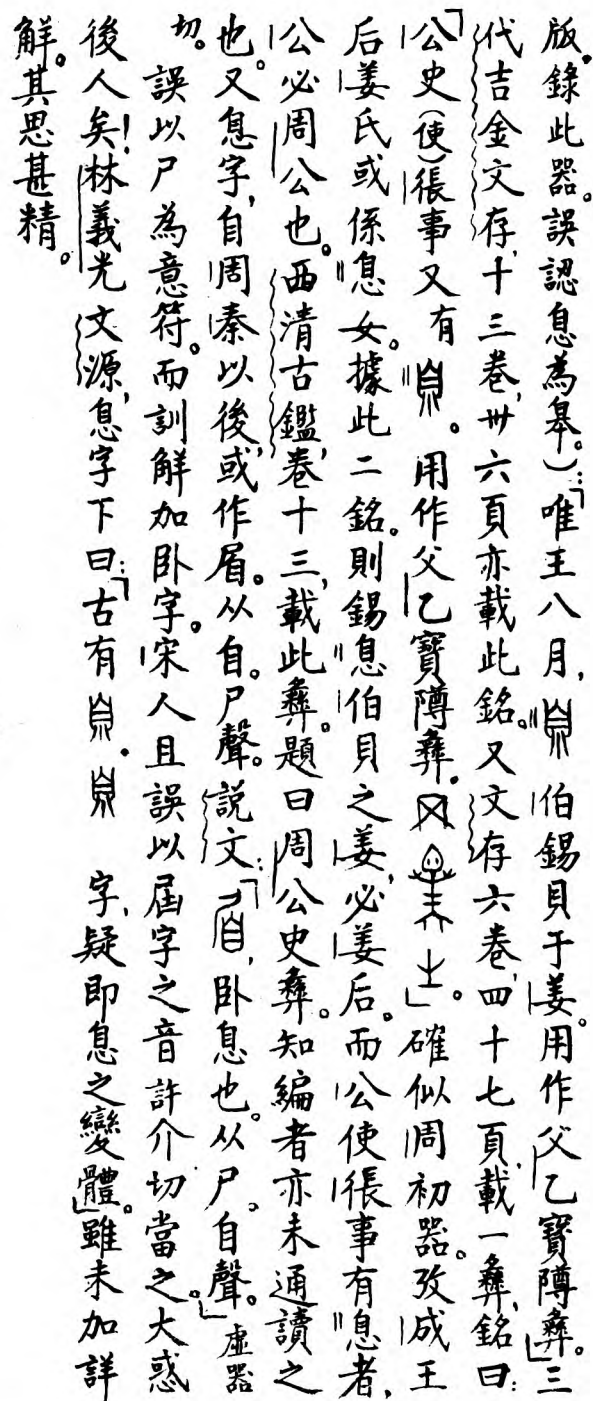 版。錄此器。誤認息為皋。)：「唯王八月，伯錫貝于姜。用作父乙寶䵼彝。」三
代吉金文存，十三卷，卅六頁亦載此銘。又文存六卷，四十七頁，載一彝，銘曰：
「公史(使)張事又有。用作父乙寶䵼彝。」確似周初器。攷成王
后姜氏或係息女。據此二銘。則錫息伯貝之姜，必姜后。而公使張事有息者，
公必周公也。西清古鑑，卷十三，載此彝。題曰周公史彝。知編者亦未通讀之
也。又息字，自周秦以後，或作眉。从自。尸聲。說文：「眉，臥息也。从尸。自聲。」虛器
切。誤以尸為意符。而訓解加臥字。宋人且誤以屆字之音許介切當之。大惑
後人矣！林義光文源，息字下曰：「古有。字，疑即息之變體。」雖未加詳
解。其思甚精。